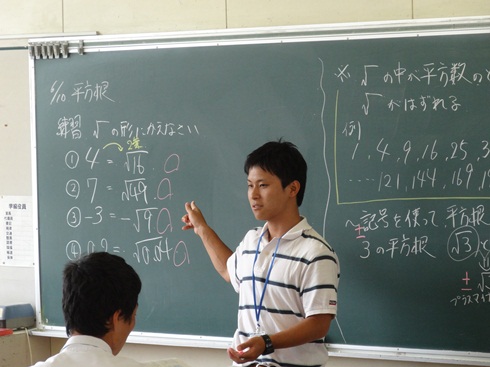 6/10 平方根
練習 √の形にかえなさい
2乗
① 4 = √16
② 7 = √49
③ -3 = -√9
④ 0.2 = √0.04
※ √の中が平方数の
√がはずれる
例
1, 4, 9, 16, 25, 3
..... 121, 144, 169, 1
記号を使って平方根
±
3の平方根
√3
±√
プラスマイ